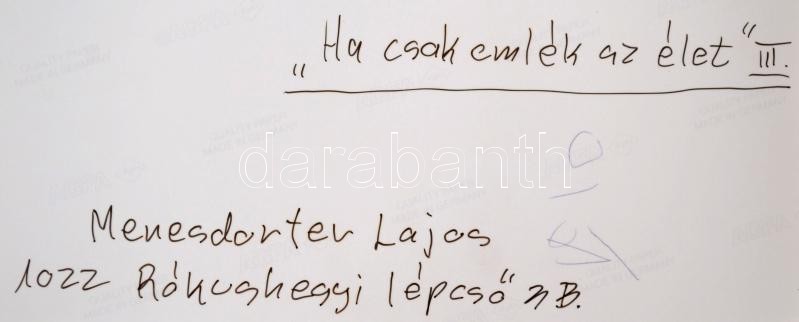 „Ha csak emlék az élet" III.
darabanth
Menesdorfer Lajos
1022 Rókushegyi lépcső 3B.